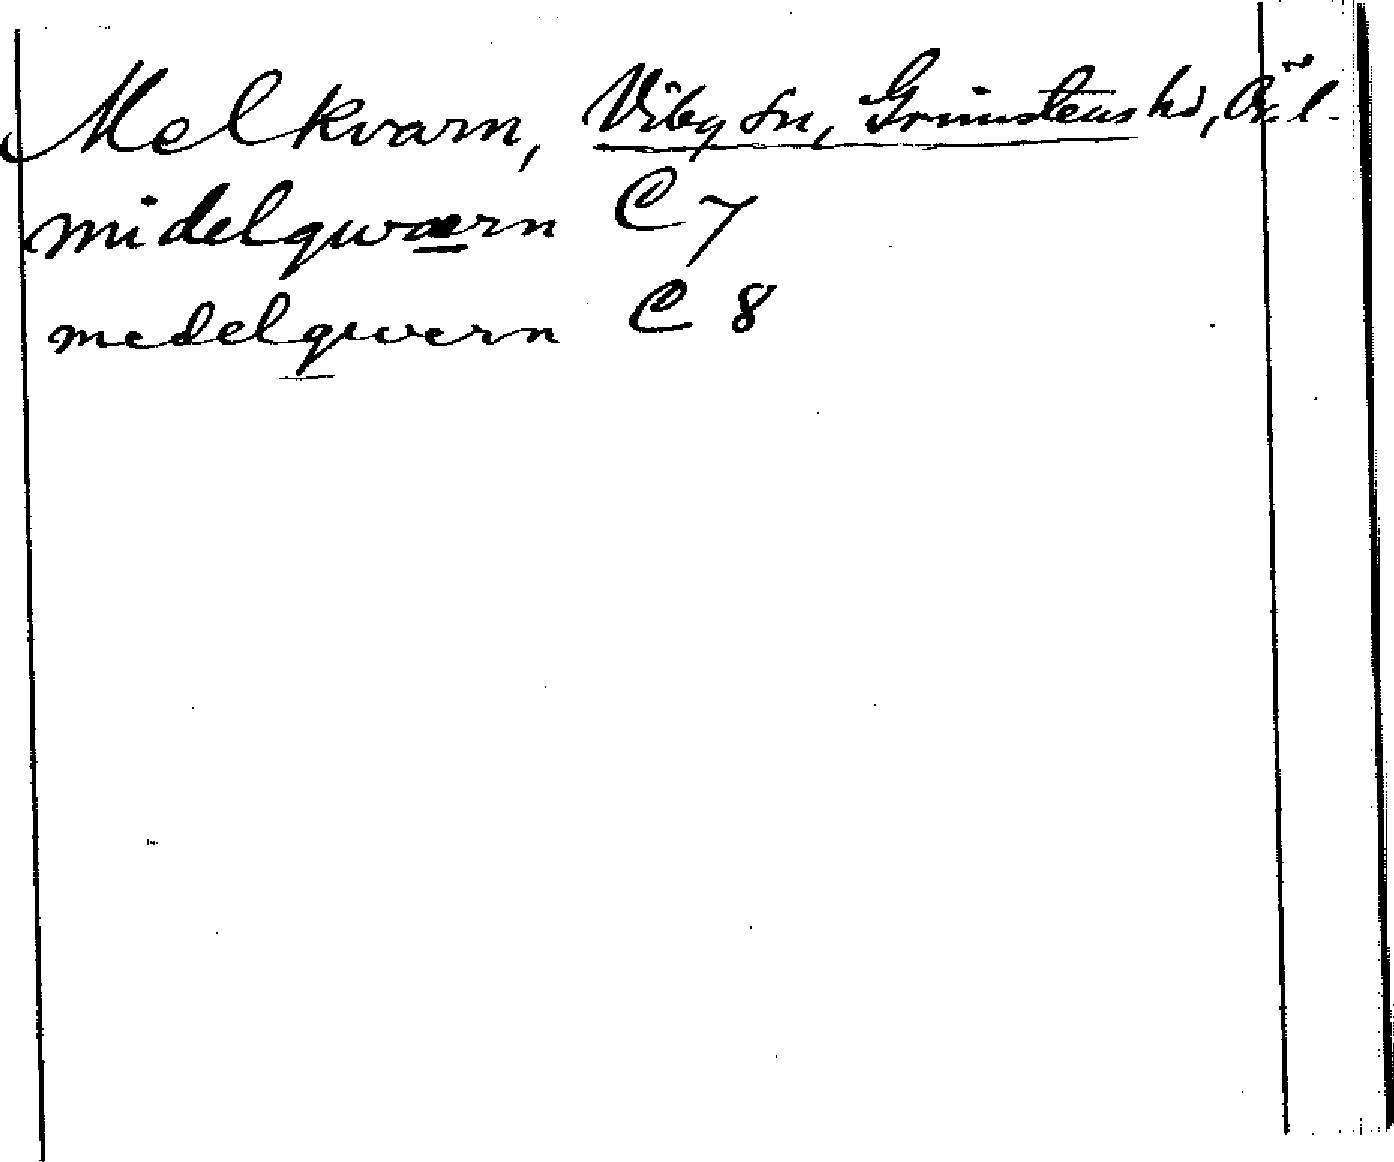 Melkvarn, Viby sn, Grimstens hd, Ör. l.
midelqwærn C 7
medelqwern C 8